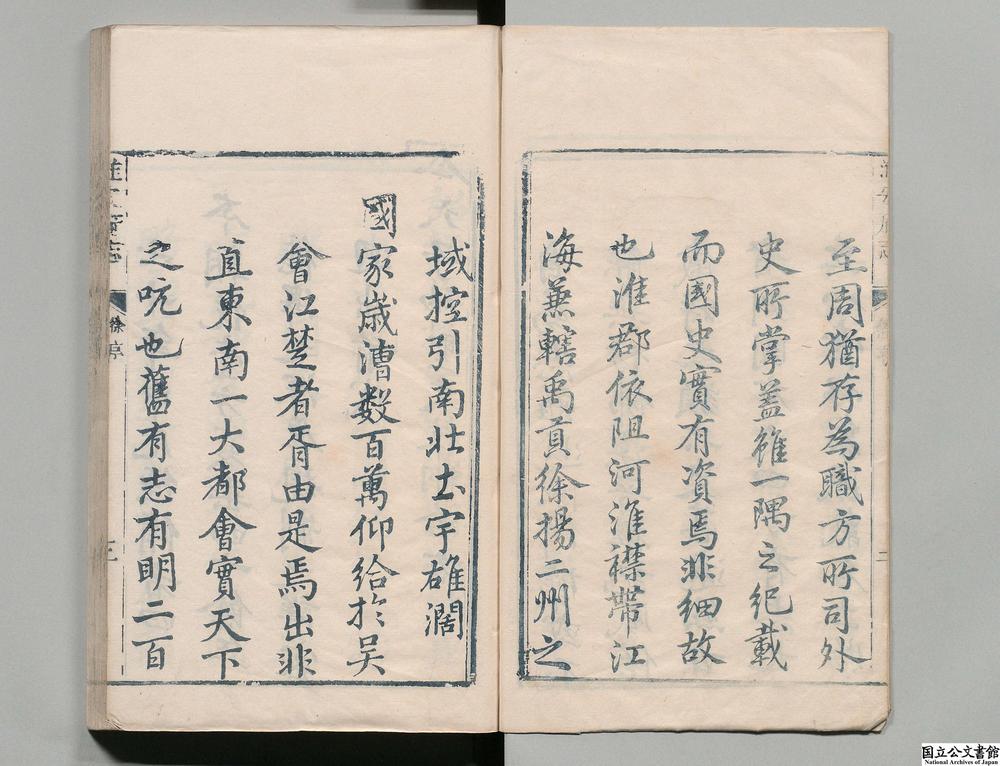 至周猶存為職方所司外
史所掌蓋雖一隅之紀載
而國史實有資焉非細故
也淮郡依阻河淮襟帶江
海兼轄禹貢徐揚二州之
域控引南北土宇雄濶
國家歲漕数百萬仰給於吴
會江楚者胥由是焉出非
直東南一大都會實天下
之吭也舊有志有明二百
徐序
三
国立公文書館
National Archives of Japan